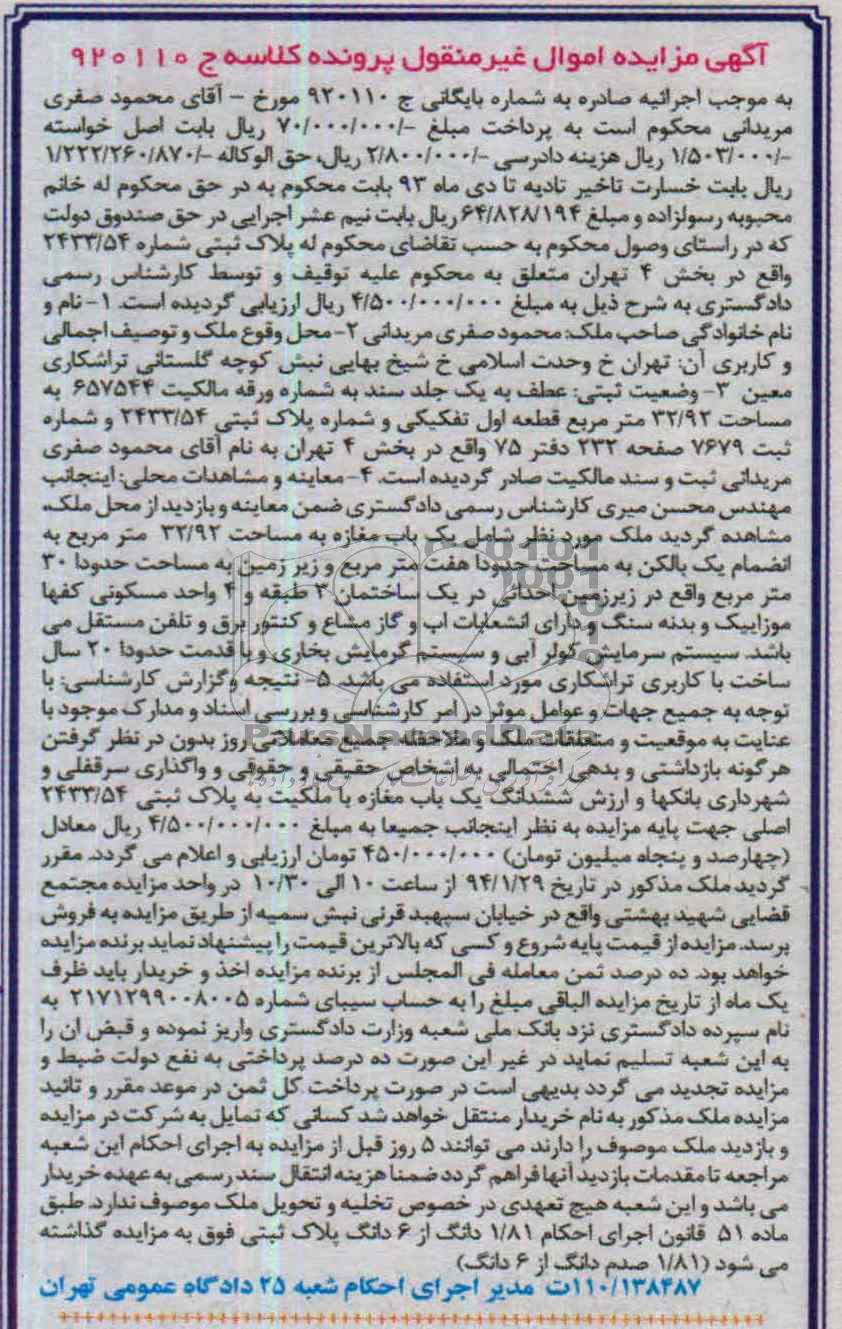 آگهی مزایده اموال غیرمنقول پرونده کلاسه ج ۹۲۰۱۱۰
به موجب اجرائیه صادره به شماره بایگانی ج ۹۲۰۱۱۰ مورخ – آقای محمود صفری
مریدانی محکوم است به پرداخت مبلغ -/۷۰/۰۰۰/۰۰۰ ریال بابت اصل خواسته
-/۱/۵۰۳/۰۰۰ ریال هزینه دادرسی -/۲/۸۰۰/۰۰۰ ریال، حق الوکاله -/۱/۲۲۲/۲۶۰/۸۷۰
ریال بابت خسارت تاخیر تادیه تا دی ماه ۹۳ بابت محکوم به در حق محکوم له خانم
محبوبه رسولزاده و مبلغ ۶۴/۸۲۸/۱۹۴ ریال بابت نیم عشر اجرایی در حق صندوق دولت
که در راستای وصول محکوم به حسب تقاضای محکوم له پلاک ثبتی شماره ۲۴۳۳/۵۴
واقع در بخش ۴ تهران متعلق به محکوم علیه توقیف و توسط کارشناس رسمی
دادگستری به شرح ذیل به مبلغ ۴/۵۰۰/۰۰۰/۰۰۰ ریال ارزیابی گردیده است. ۱- نام و
نام خانوادگی صاحب ملک: محمود صفری مریدانی ۲-محل وقوع ملک و توصیف اجمالی
و کاربری آن: تهران خ وحدت اسلامی خ شیخ بهایی نبش کوچه گلستانی تراشکاری
معین ۳- وضعیت ثبتی: عطف به یک جلد سند به شماره ورقه مالکیت ۶۵۷۵۴۴ به
مساحت ۳۲/۹۲ متر مربع قطعه اول تفکیکی و شماره پلاک ثبتی ۲۴۳۳/۵۴ و شماره
ثبت ۷۶۷۹ صفحه ۲۳۲ دفتر ۷۵ واقع در بخش ۴ تهران به نام آقای محمود صفری
مریدانی ثبت و سند مالکیت صادر گردیده است. ۴-معاینه و مشاهدات محلی: اینجانب
مهندس محسن میری کارشناس رسمی دادگستری ضمن معاینه و بازدید از محل ملک،
مشاهده گردید ملک مورد نظر شامل یک باب مغازه به مساحت ۳۲/۹۲ متر مربع به
انضمام یک بالکن به مساحت حدودا هفت متر مربع و زیر زمین به مساحت حدودا ۳۰
متر مربع واقع در زیرزمین احداثی در یک ساختمان ۳ طبقه و ۴ واحد مسکونی کفها
موزاییک و بدنه سنگ و دارای انشعابات اب و گاز مشاع و کنتور برق و تلفن مستقل می
باشد. سیستم سرمایش کولر آبی و سیستم گرمایش بخاری و با قدمت حدودا ۲۰ سال
ساخت با کاربری تراشکاری مورد استفاده می باشد. ۵- نتیجه و گزارش کارشناسی: با
توجه به جمیع جهات و عوامل موثر در امر کارشناسی و بررسی اسناد و مدارک موجود با
عنایت به موقعیت و متعلقات ملک و ملاحظه جمیع معاملاتی روز بدون در نظر گرفتن
هرگونه بازداشتی و بدهی احتمالی به اشخاص حقیقی و حقوقی و واگذاری سرقفلی و
شهرداری بانکها و ارزش ششدانگ یک باب مغازه با ملکیت به پلاک ثبتی ۲۴۳۳/۵۴
اصلی جهت پایه مزایده به نظر اینجانب جمیعا به مبلغ ۴/۵۰۰/۰۰۰/۰۰۰ ریال معادل
(چهارصد و پنجاه میلیون تومان) ۴۵۰/۰۰۰/۰۰۰ تومان ارزیابی و اعلام می گردد. مقرر
گردید ملک مذکور در تاریخ ۹۴/۱/۲۹ از ساعت ۱۰ الی ۱۰/۳۰ در واحد مزایده مجتمع
قضایی شهید بهشتی واقع در خیابان سپهبد قرنی نبش سمیه از طریق مزایده به فروش
برسد. مزایده از قیمت پایه شروع و کسی که بالاترین قیمت را پیشنهاد نماید برنده مزایده
خواهد بود. ده درصد ثمن معامله فی المجلس از برنده مزایده اخذ و خریدار باید ظرف
یک ماه از تاریخ مزایده الباقی مبلغ را به حساب سیبای شماره ۲۱۷۱۲۹۹۰۰۸۰۰۵ به
نام سپرده دادگستری نزد بانک ملی شعبه وزارت دادگستری واریز نموده و قبض ان را
به این شعبه تسلیم نماید در غیر این صورت ده درصد پرداختی به نفع دولت ضبط و
مزایده تجدید می گردد بدیهی است در صورت پرداخت کل ثمن در موعد مقرر و تائید
مزایده ملک مذکور به نام خریدار منتقل خواهد شد کسانی که تمایل به شرکت در مزایده
و بازدید ملک موصوف را دارند می توانند ۵ روز قبل از مزایده به اجرای احکام این شعبه
مراجعه تا مقدمات بازدید آنها فراهم گردد ضمنا هزینه انتقال سند رسمی به عهده خریدار
می باشد و این شعبه هیچ تعهدی در خصوص تخلیه و تحویل ملک موصوف ندارد. طبق
ماده ۵۱ قانون اجرای احکام ۱/۸۱ دانگ از ۶ دانگ پلاک ثبتی فوق به مزایده گذاشته
می شود (۱/۸۱ صدم دانگ از ۶ دانگ)
۱۱۰/۱۳۸۴۸۷ت مدیر اجرای احکام شعبه ۲۵ دادگاه عمومی تهران